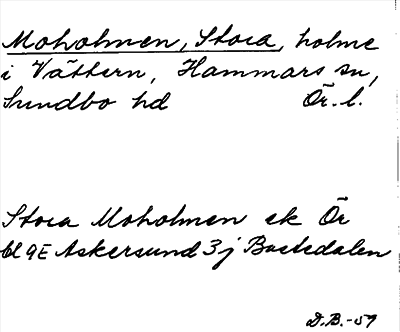 Moholmen, Stora, holme
i Vättern, Hammars sn,
Sundbo hd Ör. l.
Stora Moholmen ek Ör
bl 9E Askersund 3j Bastedalen
D.B.-59